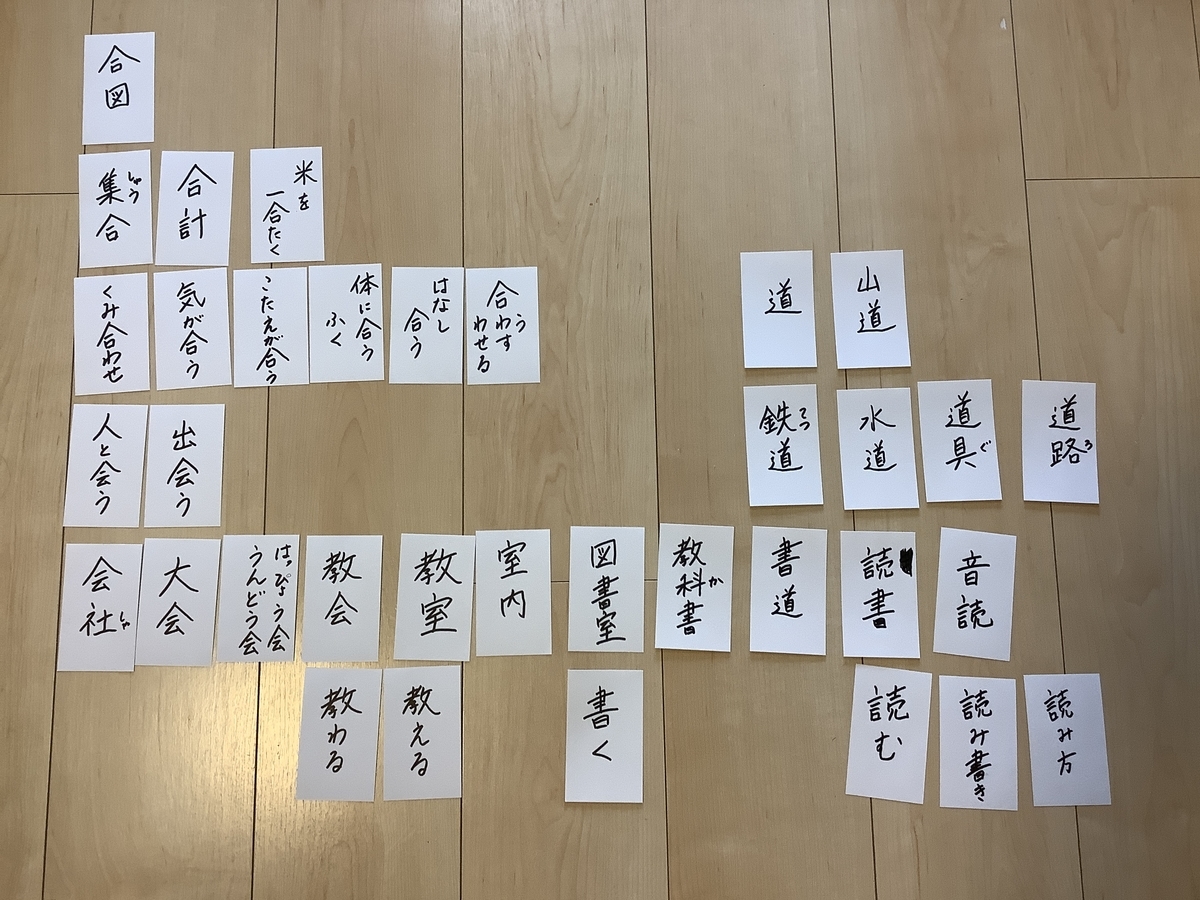 合図
集合
しゅう
合計
米を
一合たく
くみ合わせ
気が合う
こたえが合う
体に合う
ふく
はなし
合う
合う
わす
わせる
道
山道
人と会う
出会う
鉄道
てつ
水道
道具
ぐ
道路
ろ
会社
しゃ
大会
はっぴょう会
うんどう会
教会
教室
室内
図書室
教科書
か
書道
読書
音読
教わる
教える
書く
読む
読み書き
読み方